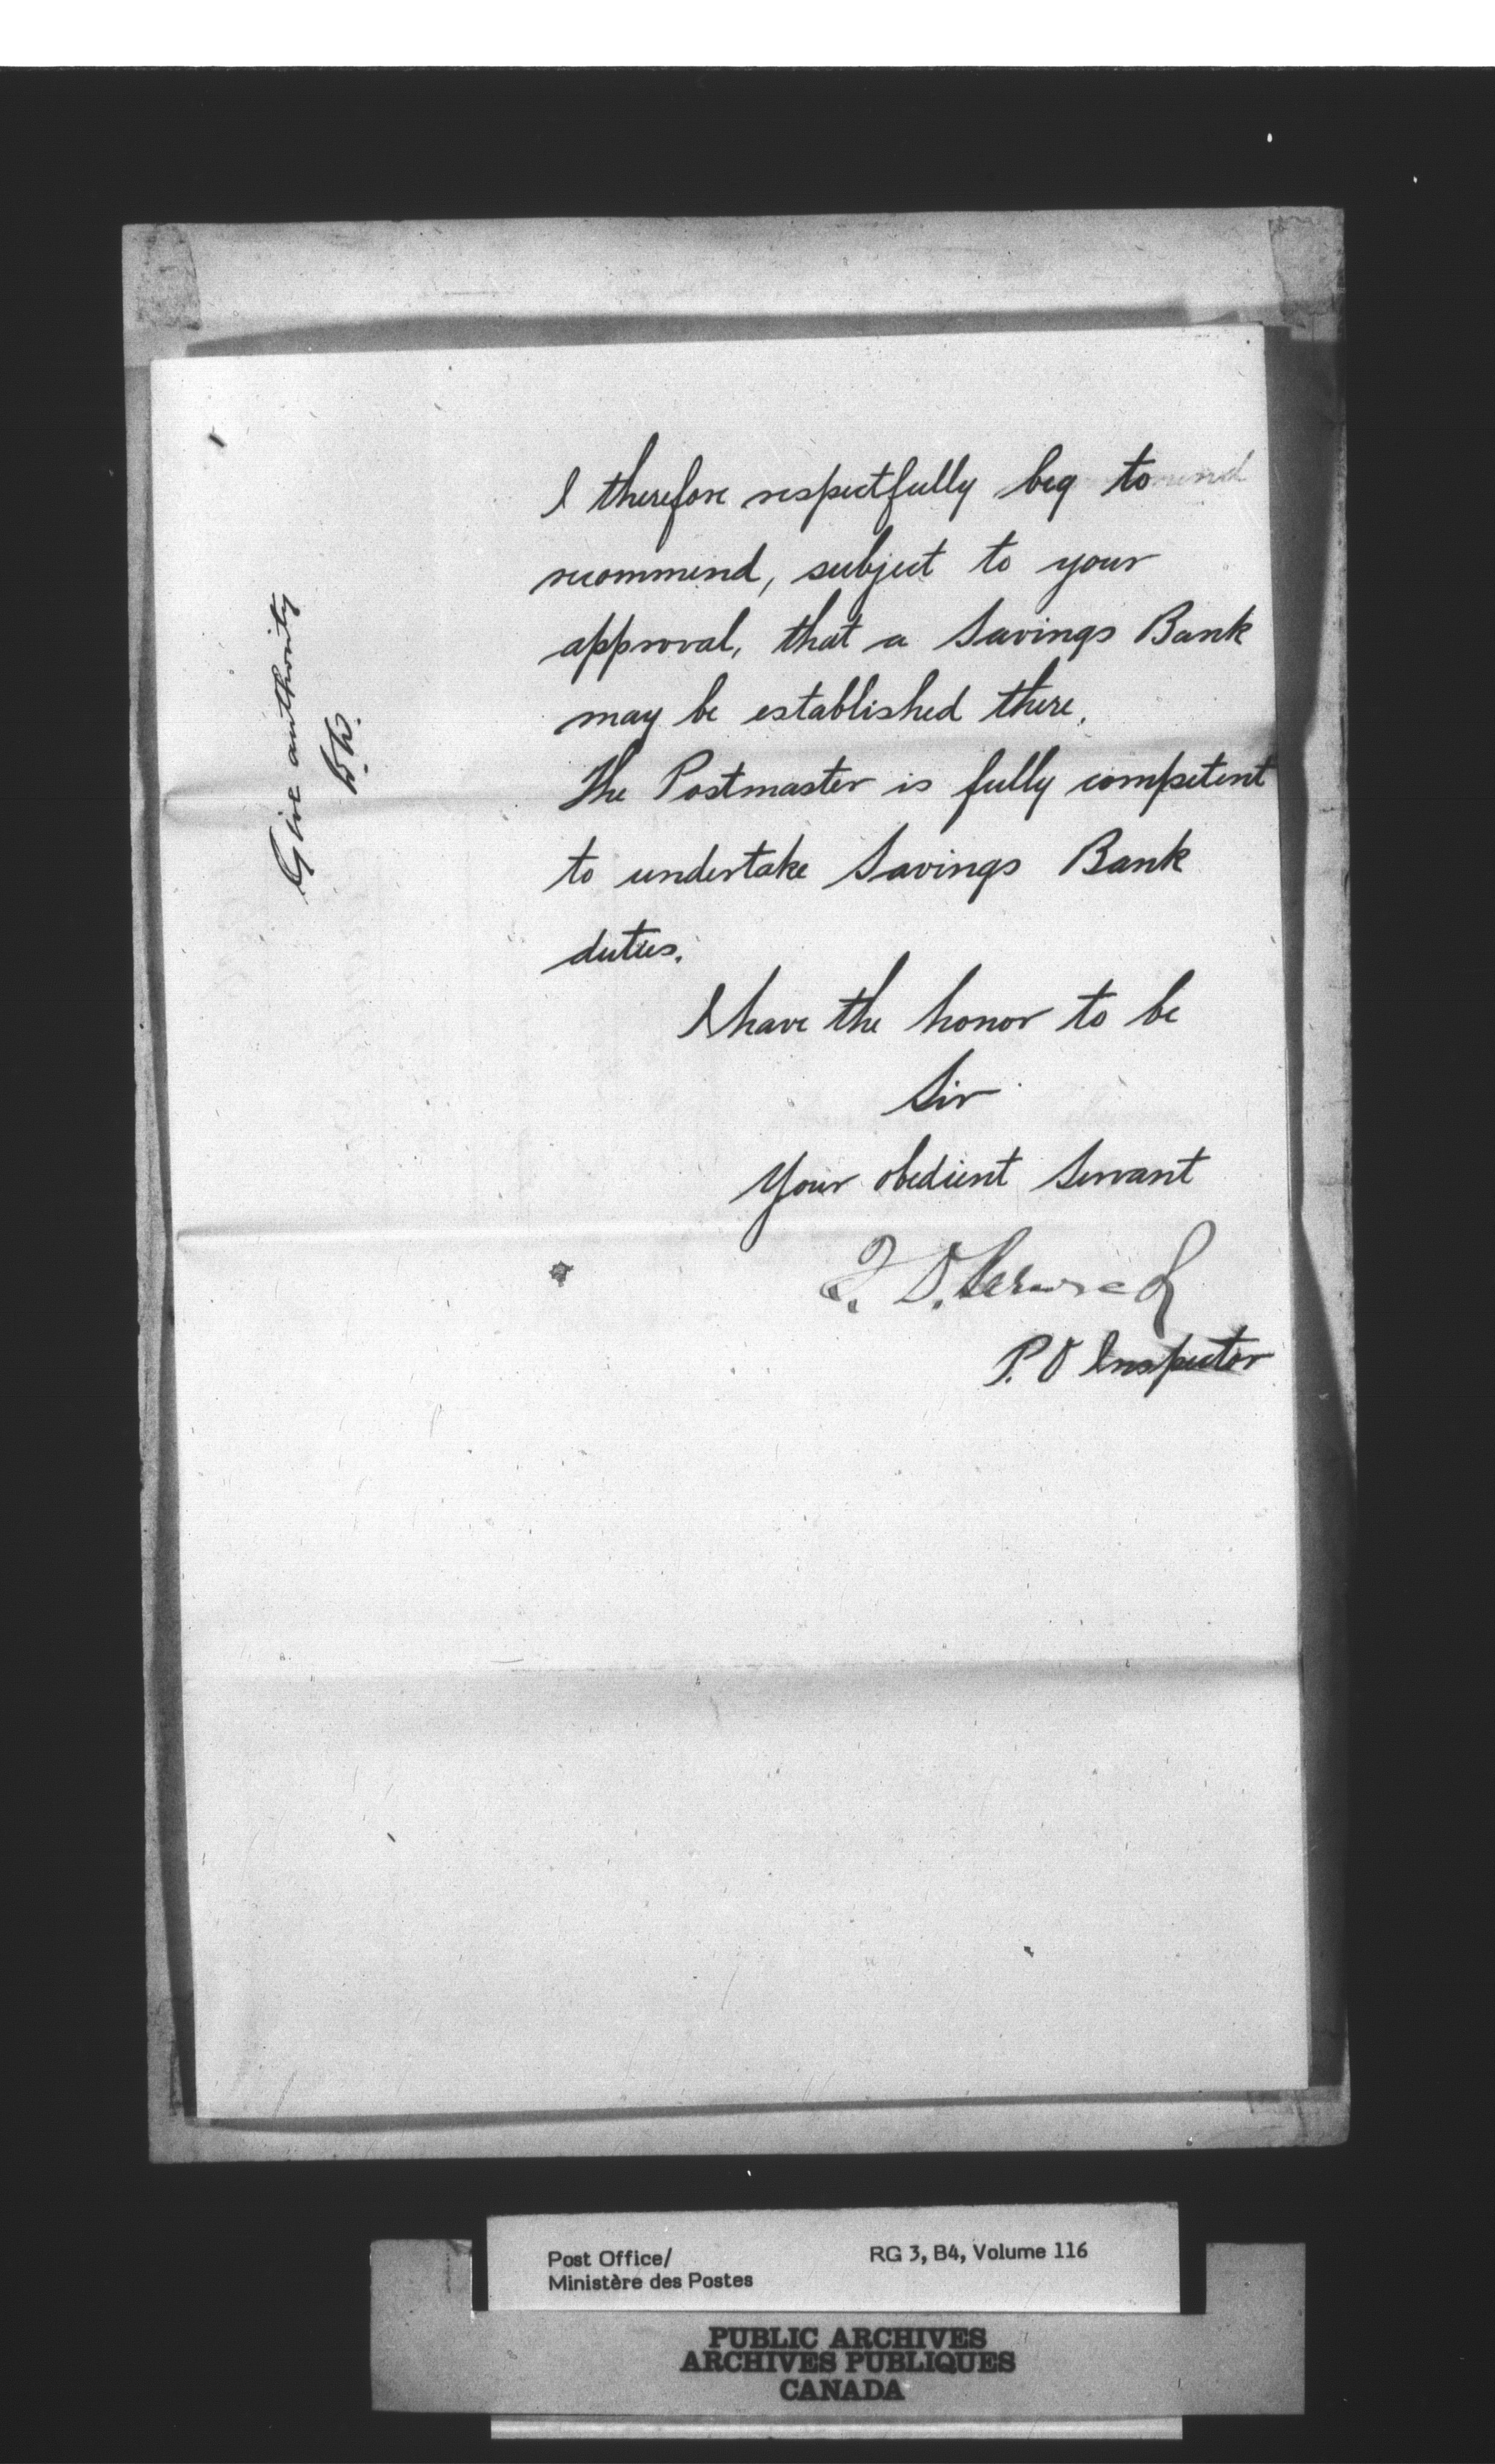 I therefore respectfully beg to
recommend, subject to your
approval, that a Savings Bank
may be established there.
The Postmaster is fully competent
to undertake Savings Bank
duties.
I have the honor to be
Sir
Your obedient Servant
P. O Inspector
Give authority
Post Office/
Ministère des Postes
RG 3, B4, Volume 116
PUBLIC ARCHIVES
ARCHIVES PUBLIQUES
CANADA